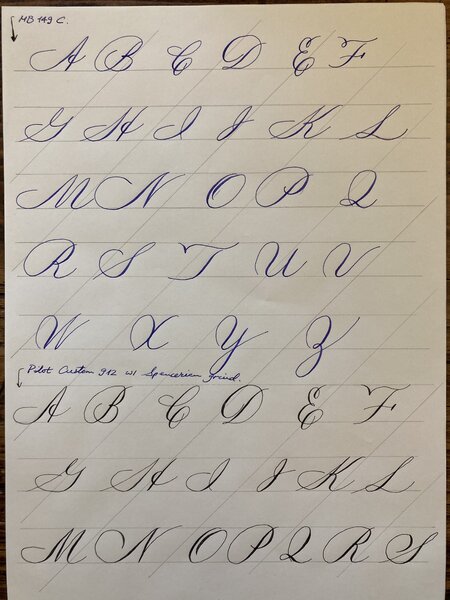 MB 149 C.
A B C D E F
G H I J K L
M N O P Q
R S T U V
W X Y Z
Pilot Custom 912 w/ Spencerian grind.
A B C D E F
G H I J K L
M N O P Q R S